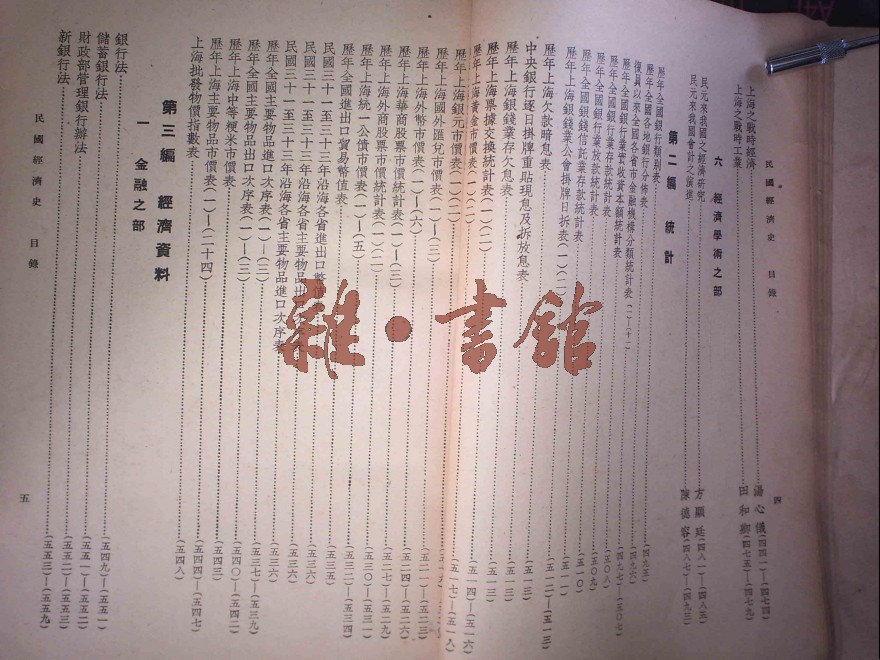 民國經濟史 目錄
四
上海之戰時經濟 湯心儀(四四一)—(四七四)
上海之戰時工業 田和卿(四七五)—(四七九)
六 經濟學術之部
民元來我國之經濟研究 方顯廷(四八一)—(四八五)
民元來我國會計之演進 陳德容(四八七)—(四九三)
第二編 統計
歷年全國銀行類別表 (四九五)
歷年全國各地銀行分佈表
復員以來全國各省市金融機構分類統計表(一)—(十一) (四九六)
歷年全國銀行業實收資本額統計表 (四九七)—(五〇七)
歷年全國銀行業存款統計表 (五〇八)
歷年全國銀行業放款統計表 (五〇九)
歷年全國銀錢信託業存款統計表 (五一〇)
歷年上海銀錢業公會掛牌日拆表(一)(二) (五一一)
歷年上海欠款暗息表 (五一二)—(五一三)
中央銀行逐日掛牌重貼現息及拆放息表 (五一三)
歷年上海銀錢業存欠息表 (五一三)
歷年上海票據交換統計表(一)(二) (五一三)
歷年上海黃金市價表(一)(二) (五一四)—(五一六)
歷年上海銀元市價表(一)(二) (五一七)—(五一八)
歷年上海國外匯兌市價表(一)—(三)
歷年上海外幣市價表(一)—(六) (五二一)—(五二三)
歷年上海華商股票市價統計表(一)—(三) (五二四)—(五二六)
歷年上海外商股票市價統計表(一)(二) (五二七)—(五二九)
歷年上海統一公債市價表(一)—(五) (五三〇)—(五三一)
歷年全國進出口貿易幣值表 (五三二)—(五三四)
民國三十一至三十三年沿海各省進出口幣值表 (五三五)
民國三十一至三十三年沿海各省主要物品出口次序表 (五三六)
民國三十一至三十三年沿海各省主要物品進口次序表 (五三六)
歷年全國主要物品出口次序表(一)—(三) (五三六)
歷年全國主要物品進口次序表(一)—(三) (五三七)—(五三九)
歷年上海中等粳米市價表 (五四〇)—(五四二)
歷年上海主要物品市價表(一)—(二十四) (五四三)
上海批發物價指數表 (五四四)—(五四七)
(五四八)
第三編 經濟資料
一 金融之部
銀行法 (五四九)—(五五一)
儲蓄銀行法 (五五一)—(五五二)
財政部管理銀行辦法 (五五二)—(五五三)
新銀行法 (五五三)—(五五九)
民國經濟史 目錄
五
雜·書館